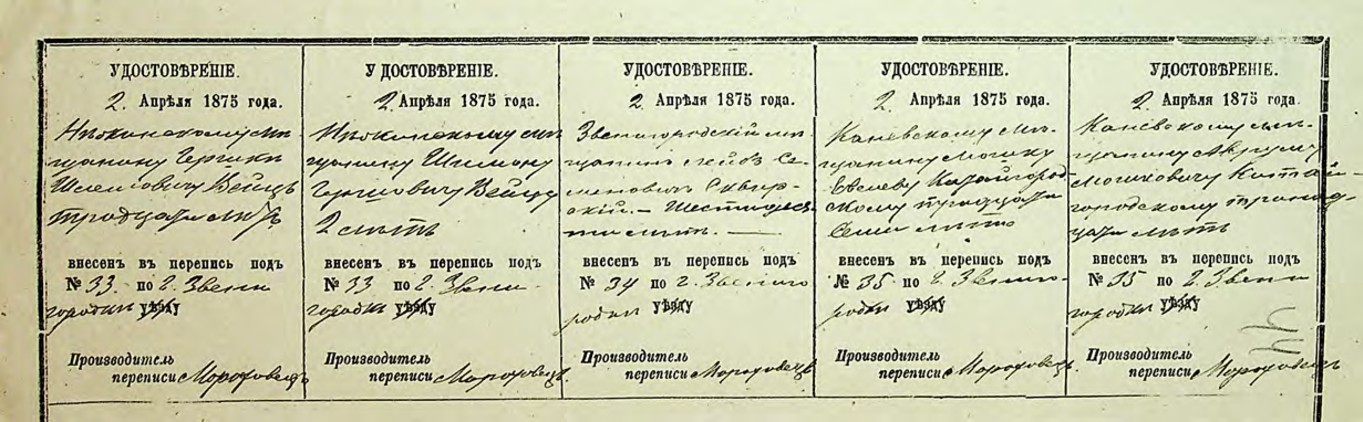 УДОСТОВѢРЕНІЕ.
2 Апрѣля 1875 года.
Нѣжинскому мѣ-
щанину Гершки
Шлемовичу Вейцъ
тридцати лѣтъ
внесенъ въ перепись подъ
№ 33. по г. Звени
городки уѣзду
Производитель
переписи
УДОСТОВѢРЕНІЕ.
2 Апрѣля 1875 года.
Нѣжинскому мѣ
щанину Шимону
Гершковичу Вейцу
2 лѣтъ
внесенъ въ перепись подъ
№ 33 по г. Звени-
городки уѣзду
Производитель
переписи
УДОСТОВѢРЕНІЕ.
2 Апрѣля 1875 года.
Звенигородскій мѣ-
щанинъ Лейбъ Се-
меновичъ Сквир-
скій. — Шестидеся-
ти лѣтъ. —
внесенъ въ перепись подъ
№ 34 по г. Звениго
родки уѣзду
Производитель
переписи
УДОСТОВѢРЕНІЕ.
2 Апрѣля 1875 года.
Каневскому мѣ-
щанину Мошку
Евелеву Китайгород-
скому тридцати
семи лѣтъ
внесенъ въ перепись подъ
№ 35 по г. Звениго-
родки уѣзду
Производитель
переписи
УДОСТОВѢРЕНІЕ.
2 Апрѣля 1875 года.
Каневскому мѣ-
щанину Аврумъ
Мошковичу Китай-
городскому тринад-
цати лѣтъ
внесенъ въ перепись подъ
№ 35 по г. Звени
городки уѣзду
Производитель
переписи
44